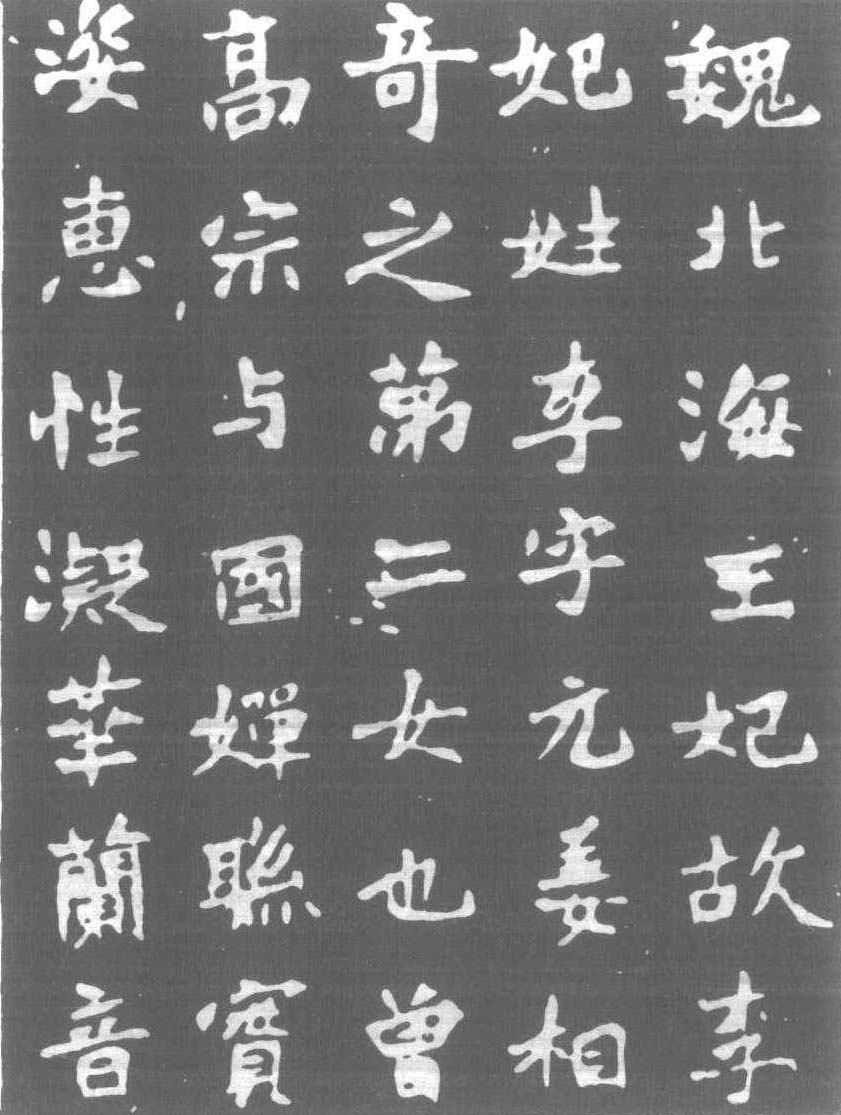 魏北海王妃故李
妃姓李字元姜相
奇之第二女也曾
高宗与國嬋聯實
姿惠性凝華蘭音